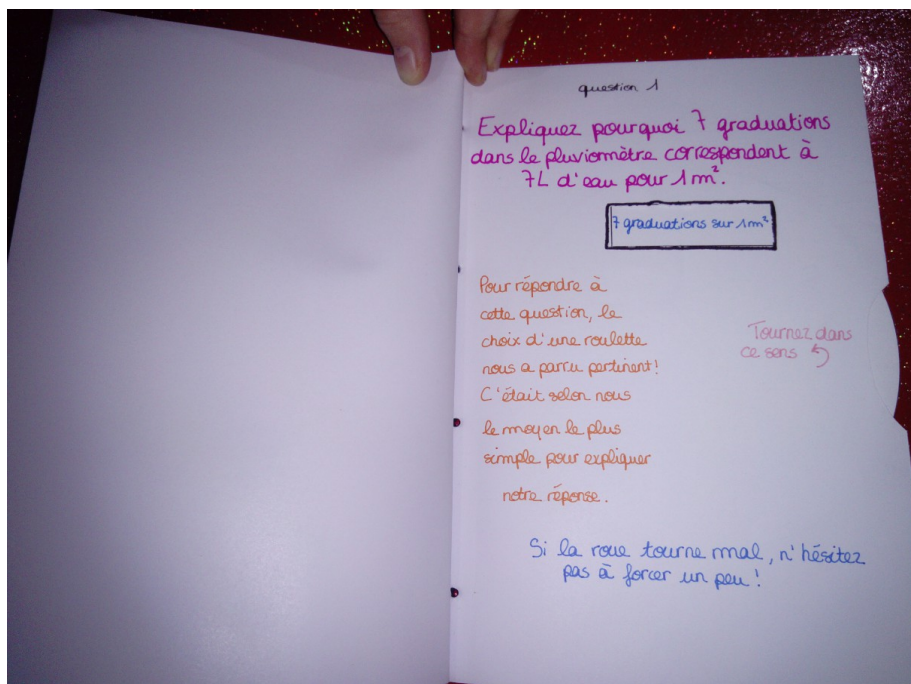 question 1
Expliquez pourquoi 7 graduations
dans le pluviomètre correspondent à
7L d'eau pour 1m².
7 graduations sur 1m²
Pour répondre à
cette question, le
choix d'une roulette
nous a parru pertinent!
C'était selon nous
le moyen le plus
simple pour expliquer
notre réponse.
Tournez dans
ce sens
Si la roue tourne mal, n'hésitez
pas à forcer un peu!